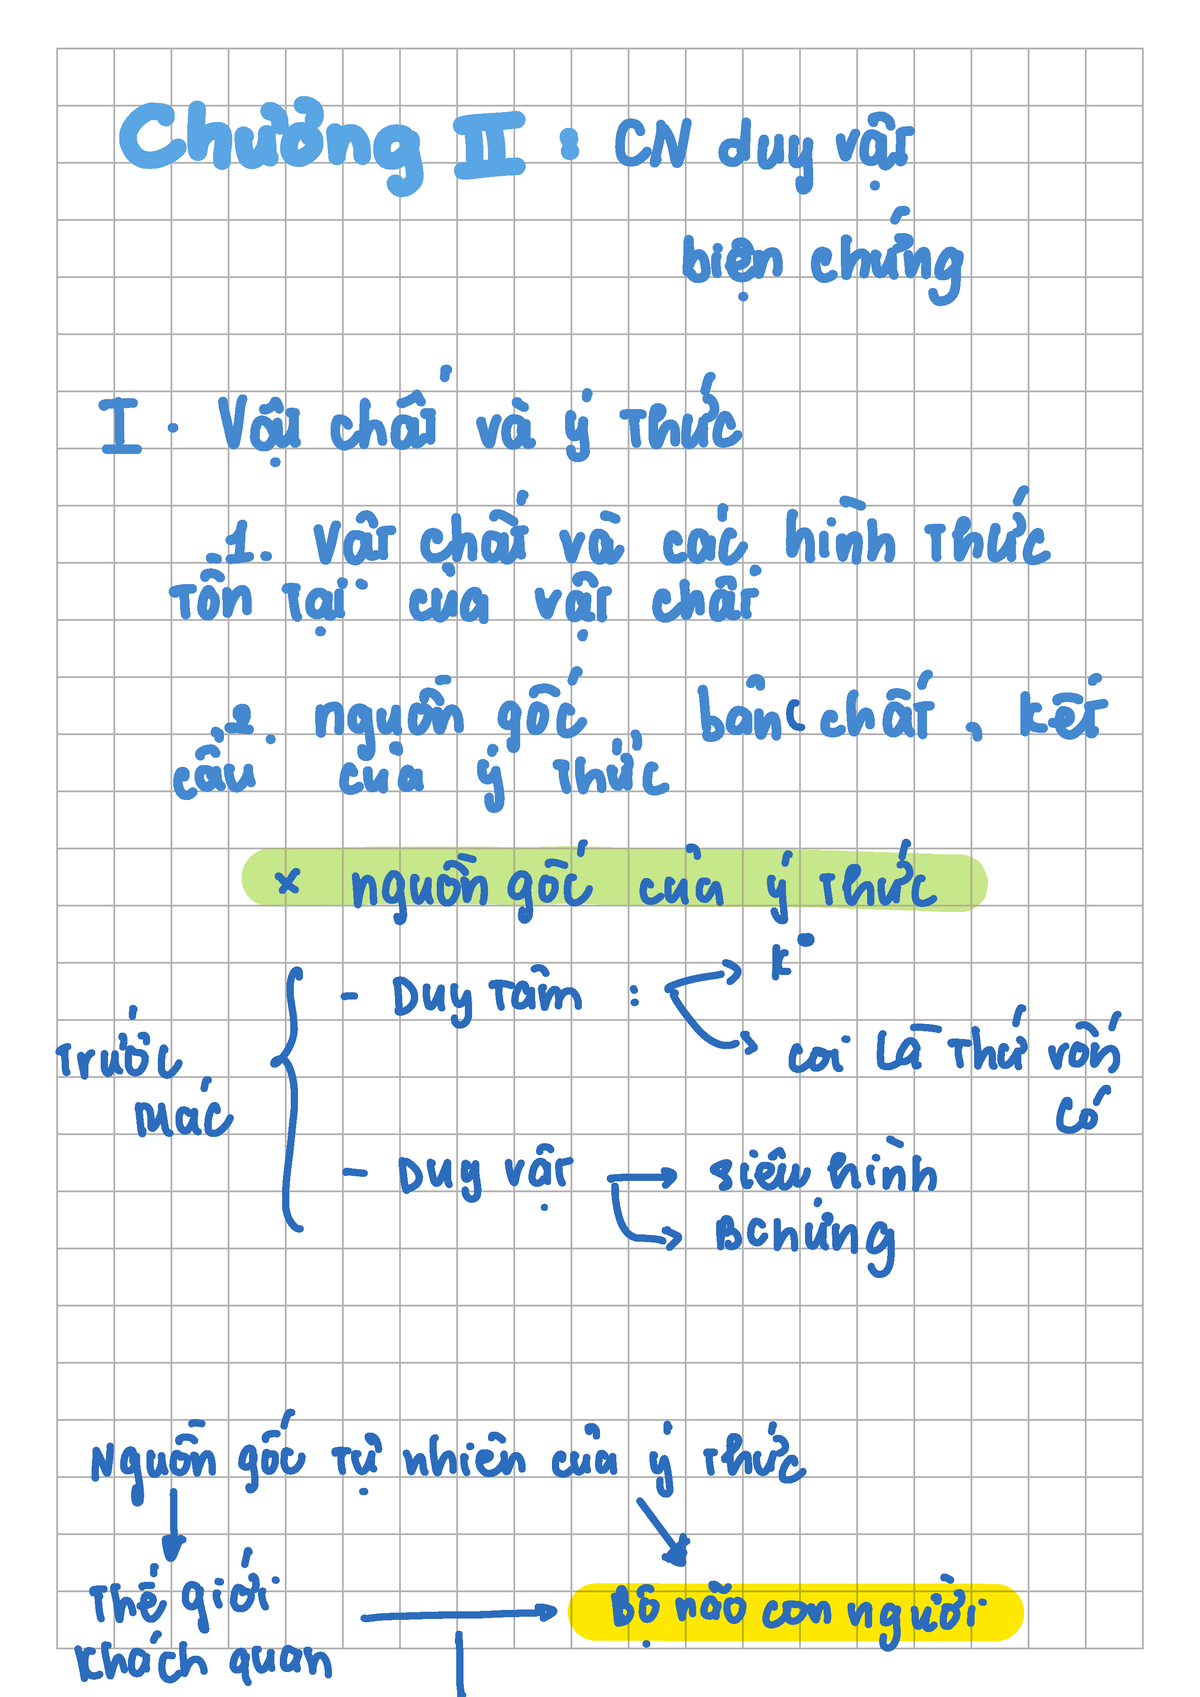 Chương II : CN duy vật
biện chứng
I. Vật chất và ý thức
1. Vật chất và các hình thức
tồn tại của vật chất
2. nguồn gốc, bản chất, kết
cấu của ý thức
x nguồn gốc của ý thức
- Duy tâm :
coi là thứ vốn
có
Trước
Mác
- Duy vật → siêu hình
Bchứng
Nguồn gốc tự nhiên của ý thức
Thế giới → Bộ não con người
khách quan